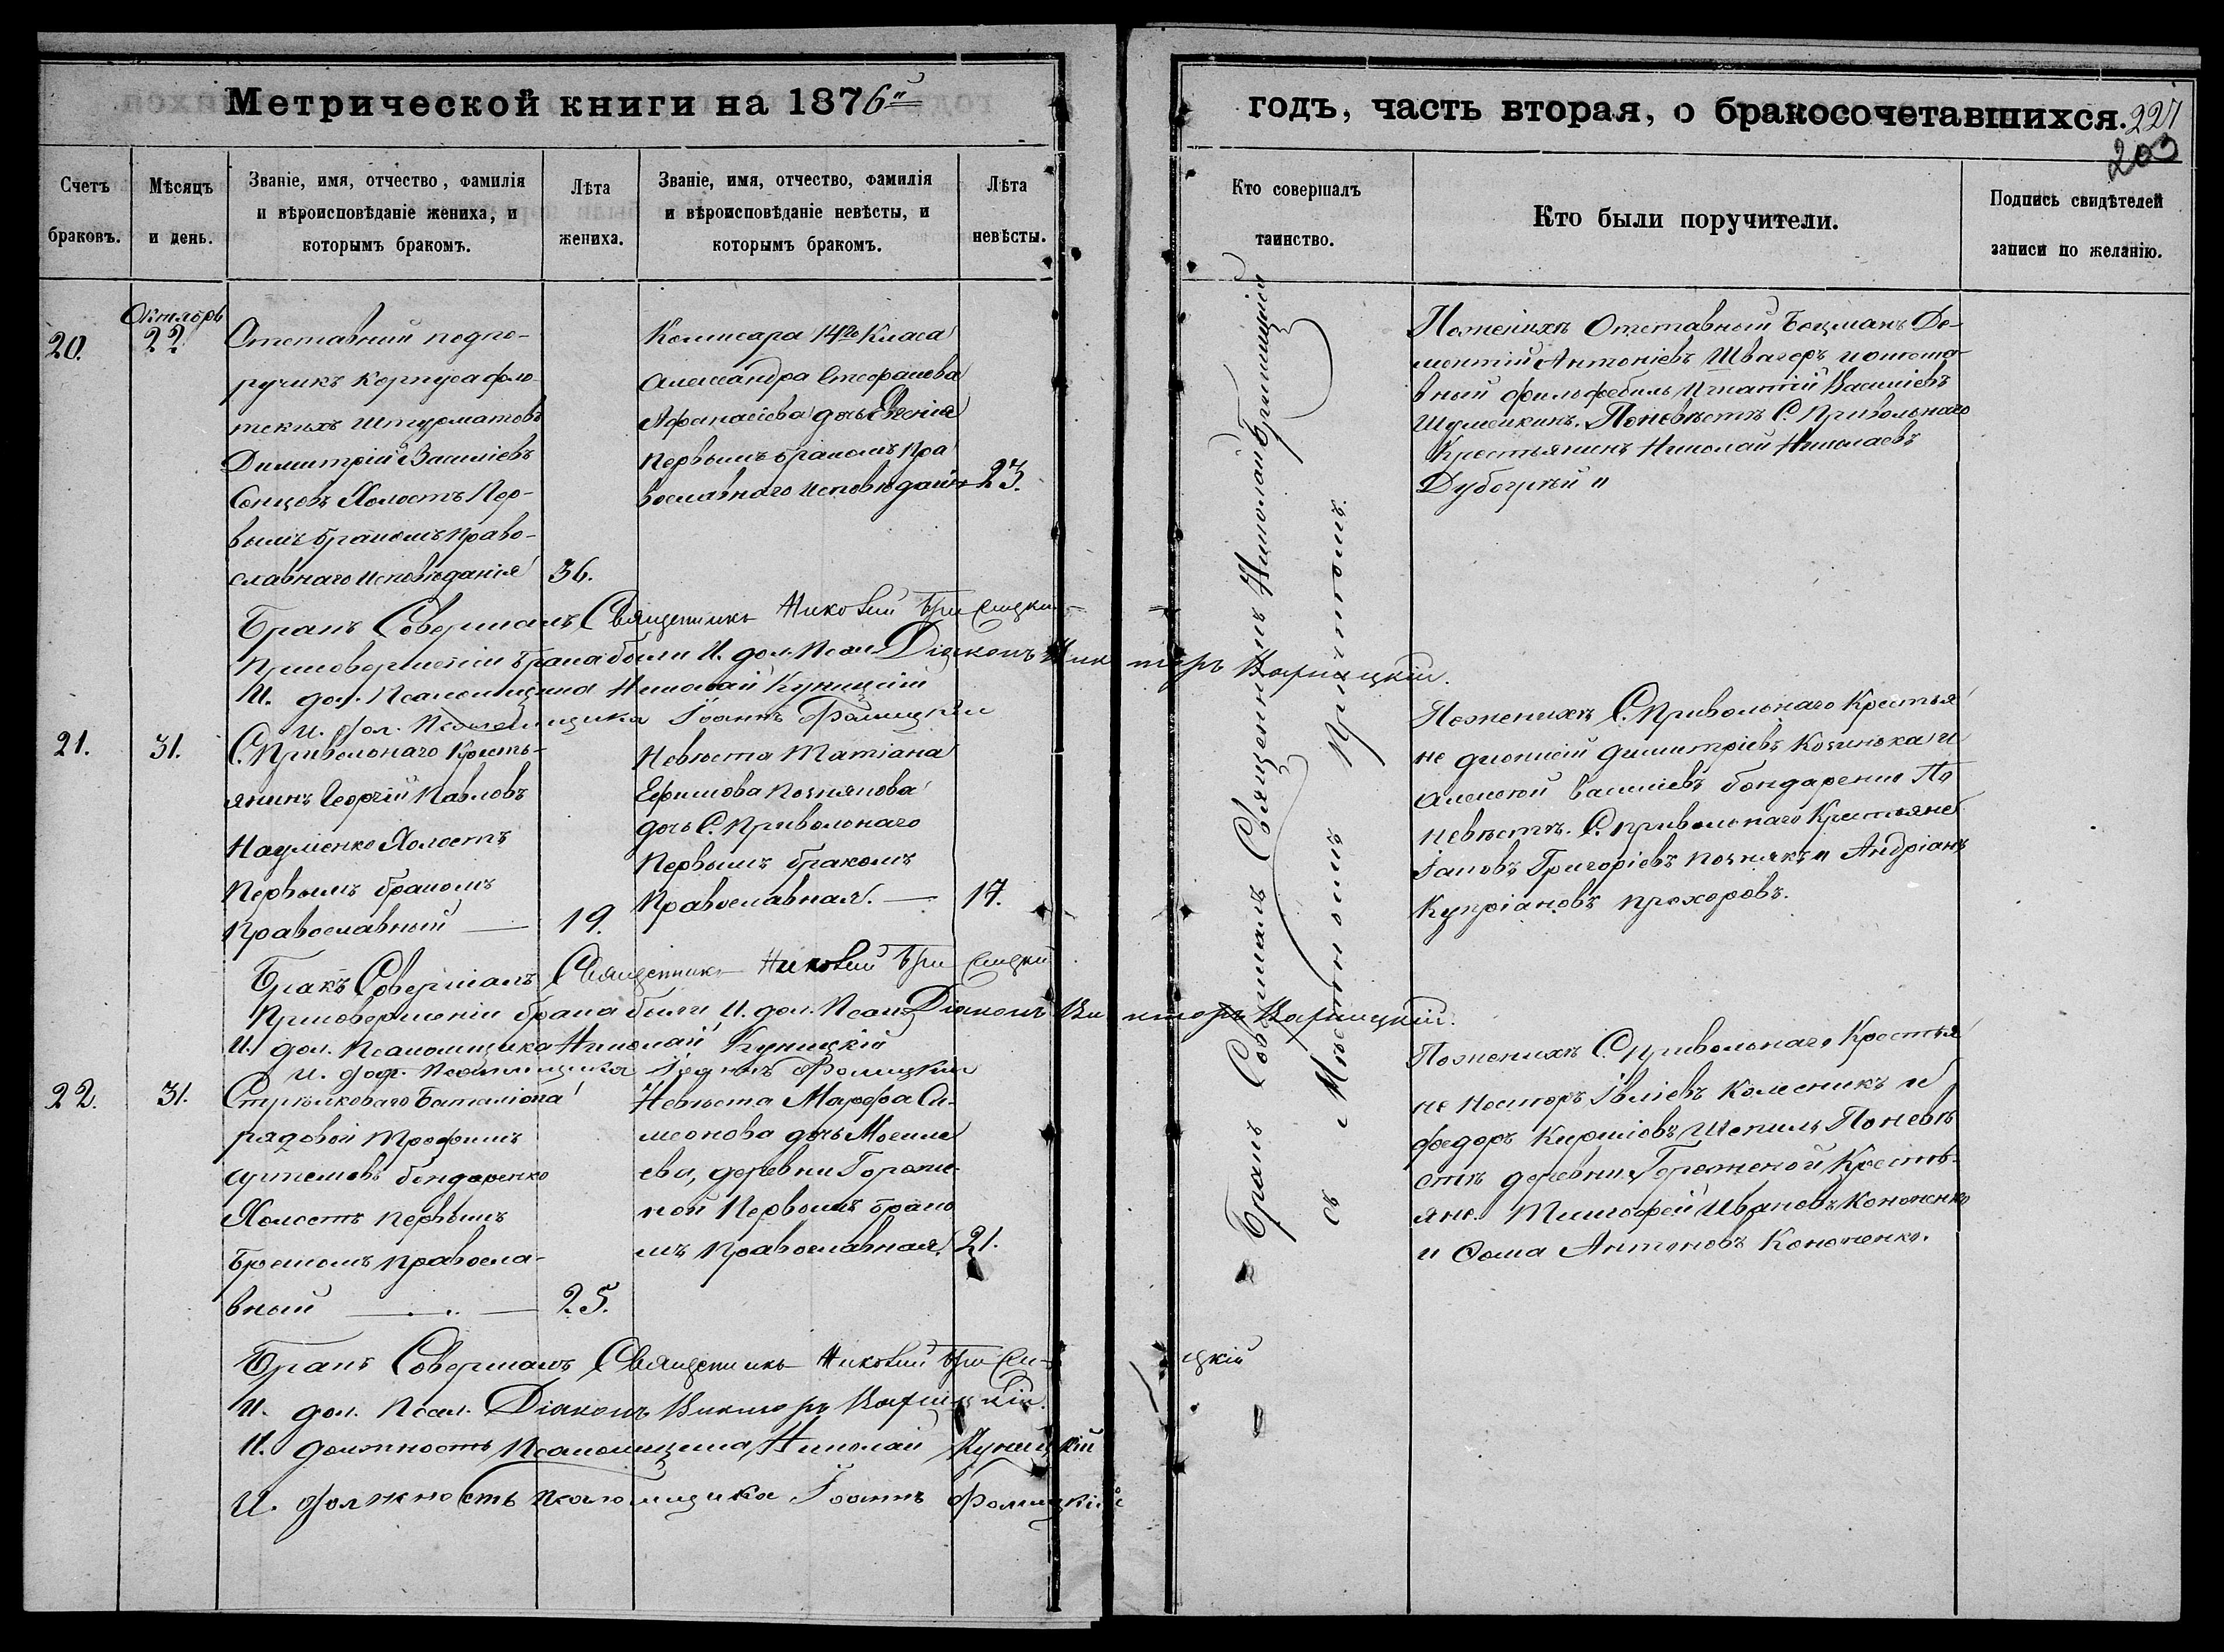 Метрической книги на 1876й
годъ, часть вторая, о бракосочетавшихся.
227
203
Счетъ браковъ.
Мѣсяцъ и день.
Званіе, имя, отчество, фамилія и вѣроисповѣданіе жениха, и которымъ бракомъ.
Лѣта жениха.
Званіе, имя, отчество, фамилія и вѣроисповѣданіе невѣсты, и которымъ бракомъ.
Лѣта невѣсты.
Кто совершалъ таинство.
Кто были поручители.
Подпись свидѣтелей записи по желанію.
20.
Октябрь
22
Отставний подпо-
ручикъ Корпуса фло-
тскихъ штурматовъ
Димитрій Василіевъ
Сонцовъ Холостъ Пер-
вымъ бракомъ право-
славнаго исповѣданія
36.
Комисара 14го Класа
Александра Стефанова
Афанасіева дочь Евгенія
Первымъ бракомъ Пра
вославнаго исповѣданія
23.
Поженихѣ Отставный Боцманъ Де-
ментій Антоніевъ Швагеръ и отста-
вный фельфебиль Игнатій Василіевъ
Шумейкинъ. Поневѣстѣ С. Привольнаго
Крестьянинъ Николай Николаевъ
Дубогрѣй "
Бракъ Совершалъ Священникъ Николай
Присовершеніи брака были И. дол. Псал. Діаконъ Викторъ Варницкій.
И. дол. Псаломщика Николай Куницкій
И. дол. Псаломщика Іоаннъ Фомицкій
21.
31.
С. Привольнаго Кресть-
янинъ Георгій Павловъ
Науменко Холостъ
Первымъ бракомъ
Православный
19.
Невѣста Татіана
Ефимова Познякова
дочь С. Привольнаго
Первымъ бракомъ
Православная.
17.
Поженихѣ С. Привольнаго Крестья
не Діонисій Димитріевъ и
Алексѣй Василіевъ Бондаренко По
невѣстѣ. С. Привольнаго Крестьяне
Іаковъ Григоріевъ Познякъ и Андріанъ
Купріановъ Прохоровъ.
Бракъ Совершалъ Священникъ Николай
Присовершеніи брака были И. дол. Псал. Діаконъ Викторъ Варницкій.
И. дол. Псаломщика Николай Куницкій
И. дол. Псаломщика Іоаннъ Фомицкій
22.
31.
Стрѣлковаго Баталіона
рядовой Трофимъ
Артемовъ Бондаренко
Холостъ первымъ
Бракомъ правосла-
вный
25.
Невѣста Марфа Си-
меонова дочь Моисие
ева, деревни Горожe-
ной Первымъ брако
мъ православная,
21.
Поженихѣ С. Привольнаго Крестья
не Несторъ Іовліевъ Колесникъ и
Федоръ Кириловъ Поневѣ
стѣ деревни Горожeной Кресть-
яне. Тимофей Ивановъ Кононенко
и Фома Антоновъ Кононенко.
Бракъ Совершалъ Священникъ Николай
И. дол. Псал. Діаконъ Викторъ Варницкій.
И. должность Псаломщика Николай Куницкій
И. должность псаломщика Іоаннъ Фомицкій
Бракъ Совершалъ Священникъ Николай
съ Мѣстнымъ Притомъ.